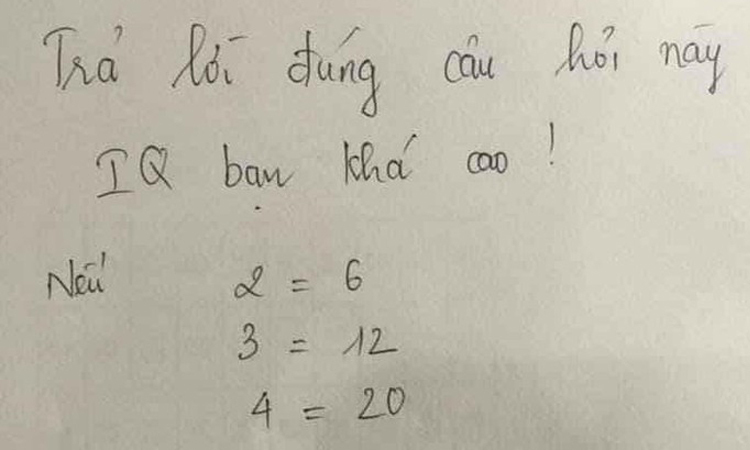 Trả lời đúng câu hỏi này
IQ bạn khá cao !
Nếu 2 = 6
3 = 12
4 = 20